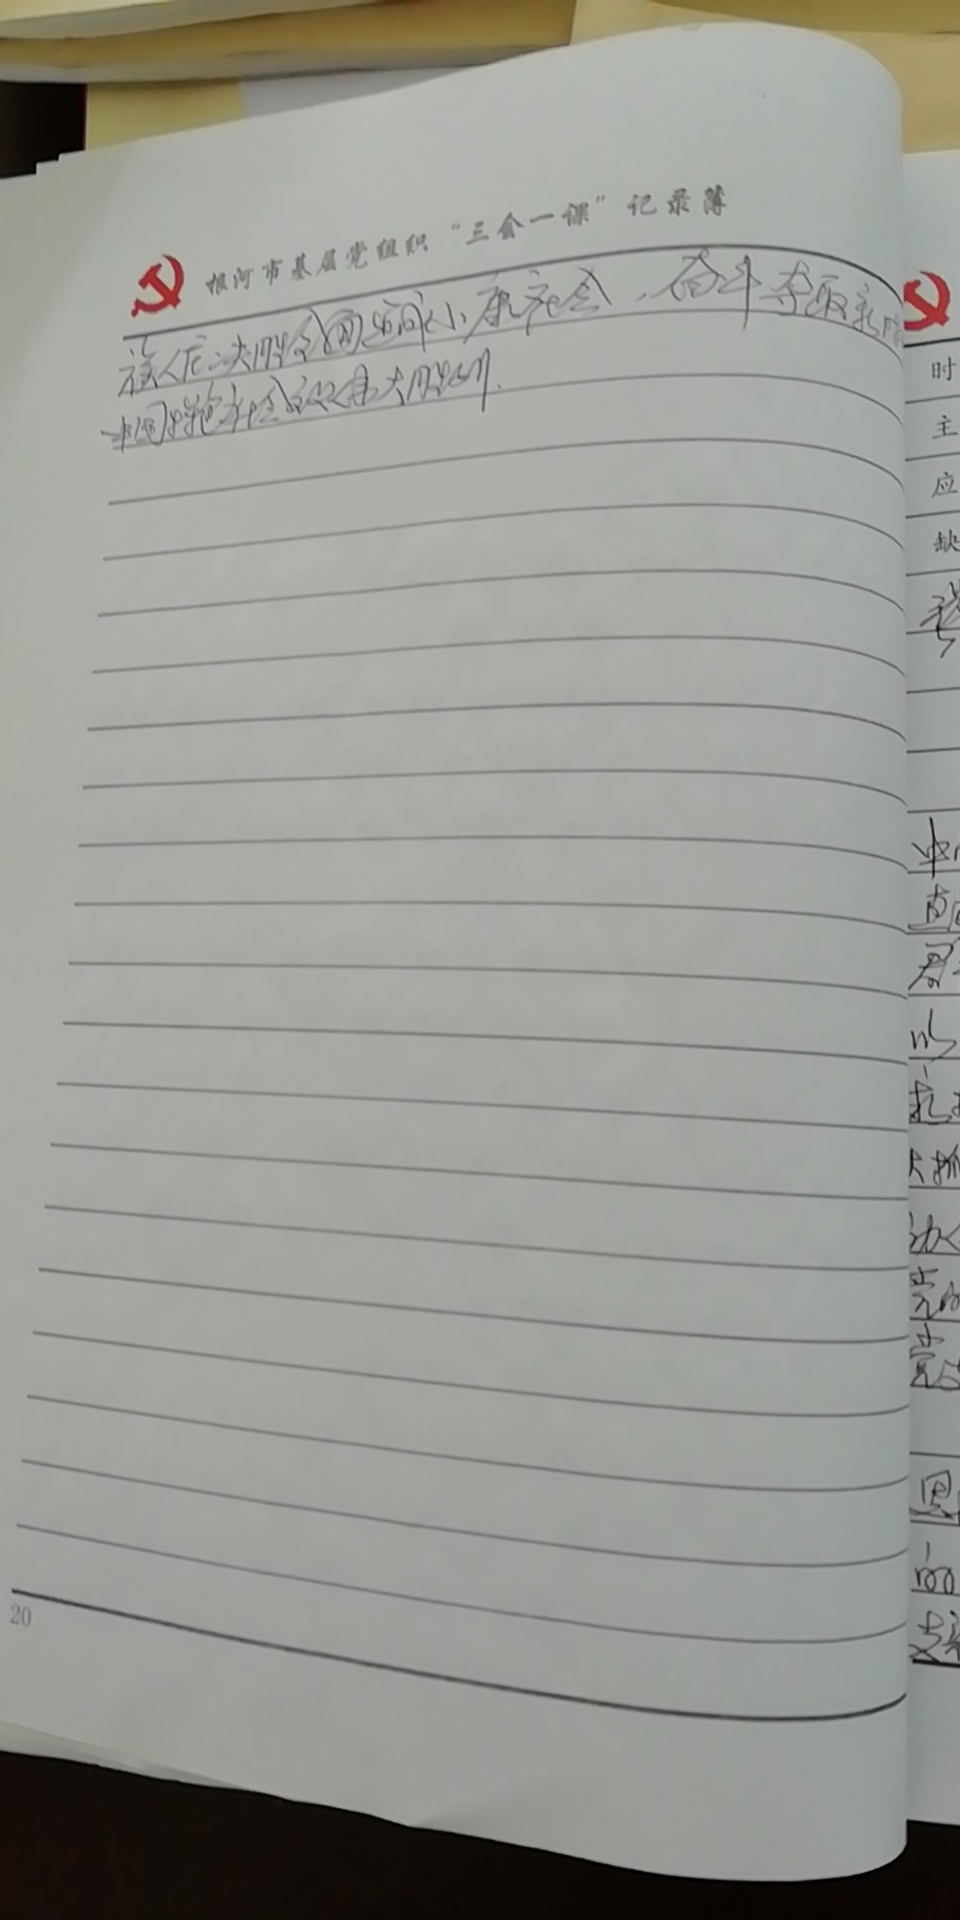 根河市基层党组织“三会一课”记录簿
族人民决胜全面建成小康社会，奋斗夺取新时
中国特色社会主义伟大胜利.
20
时
主
应
缺
中
直
以
大抓
党的
党
恩
的
支